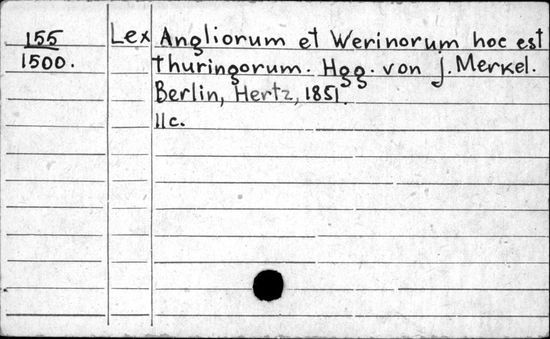 155 Lex Angliorum et Werinorum hoc est
1500. Thuringorum. Hgg. von J. Merkel.
Berlin, Hertz, 1851.
11c.